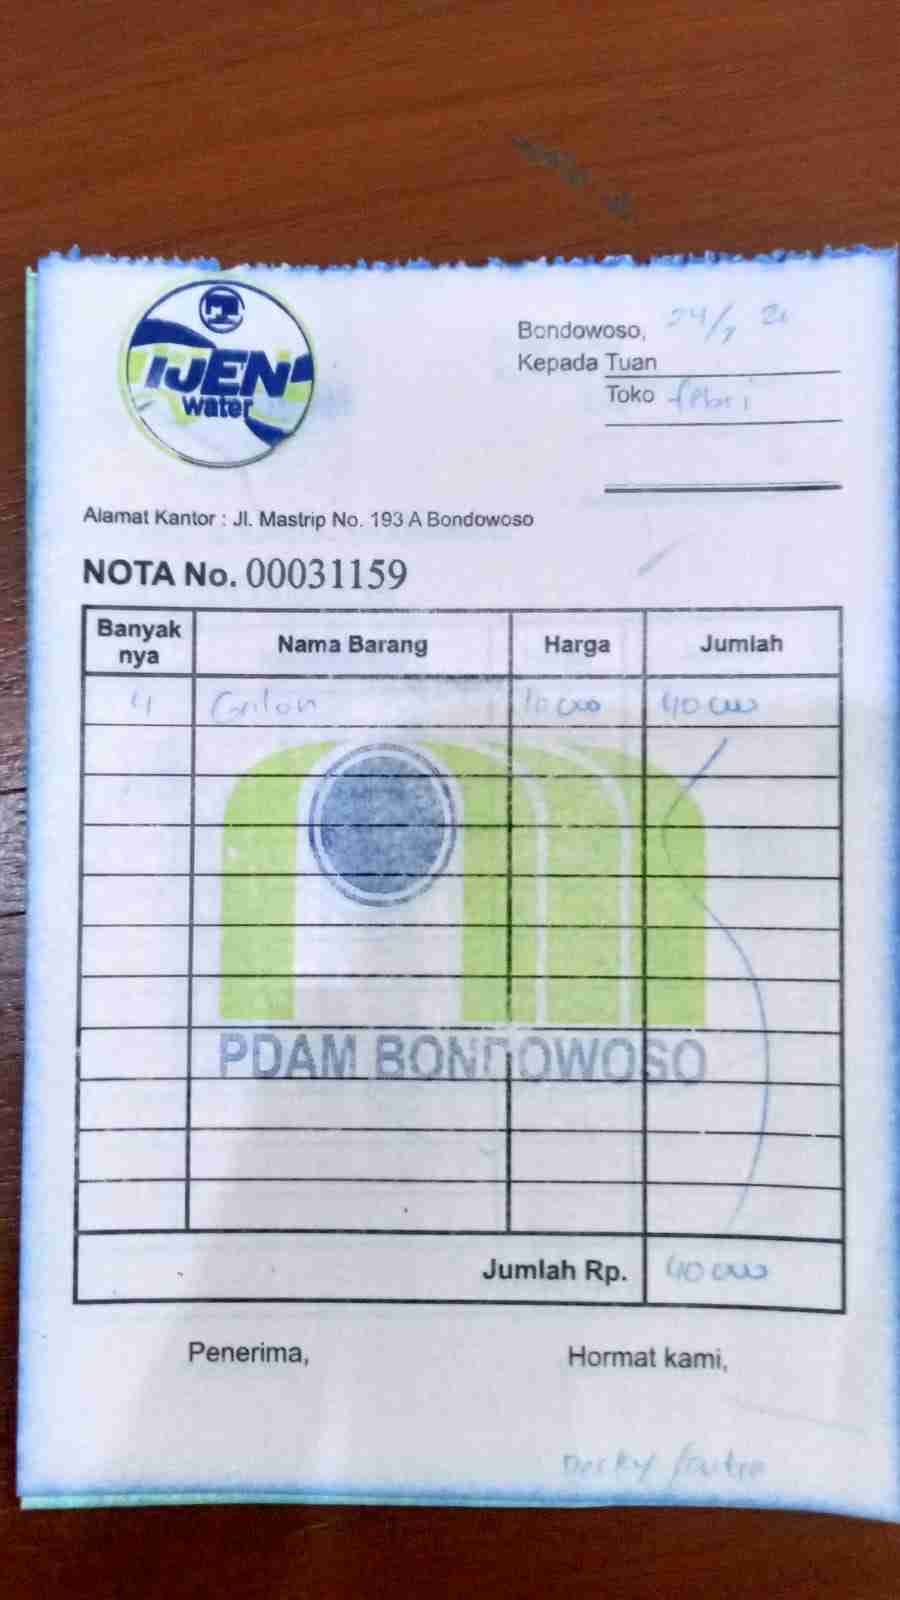 IJEN
water
Bondowoso, 24/7
Kepada Tuan
Toko febri
Alamat Kantor : Jl. Mastrip No. 193 A Bondowoso
NOTA No. 00031159
Banyak nya Nama Barang Harga Jumlah
4 Galon 10 000 40 000
PDAM BONDOWOSO
Jumlah Rp. 40 000
Penerima, Hormat kami,